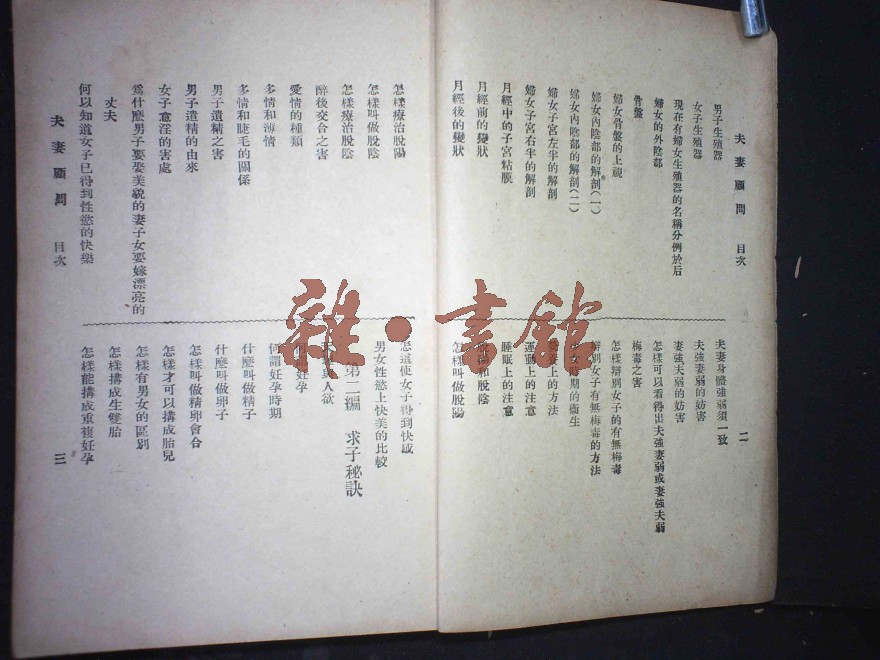 夫妻顧問 目次 二
男子生殖器
女子生殖器
現在有婦女生殖器的名稱分例於后
婦女的外陰部
骨盤
婦女骨盤的上視
婦女內陰部的解剖(一)
婦女內陰部的解剖(二)
婦女子宮左半的解剖
婦女子宮右半的解剖
月經中的子宮粘膜
月經前的變狀
月經後的變狀
夫妻身體強弱須一致
夫強妻弱的妨害
妻強夫弱的妨害
怎樣可以看得出夫強妻弱或妻強夫弱
梅毒之害
怎樣辯別女子的有無梅毒
辯別女子有無梅毒的方法
時期的衞生
上的方法
運動上的注意
睡眠上的注意
和脫陰
怎樣叫做脫陽
怎樣療治脫陽
怎樣叫做脫陰
怎樣療治脫陰
醉後交合之害
愛情的種類
多情和薄情
多情和睫毛的關係
男子遺精之害
男子遺精的由來
女子意淫的害處
爲什麼男子要娶美貌的妻子女要嫁漂亮的
丈夫
何以知道女子已得到性慾的快樂
怎這使女子得到快感
男女性慾上快美的比較
第二編 求子秘訣
人欲
何謂妊孕
何謂妊孕時期
什麼叫做精子
什麼叫做卵子
怎樣叫做精卵會合
怎樣才可以搆成胎兒
怎樣有男女的區別
怎樣搆成生雙胎
怎樣能搆成重複妊孕
夫妻顧問 目次 三
雜·書館